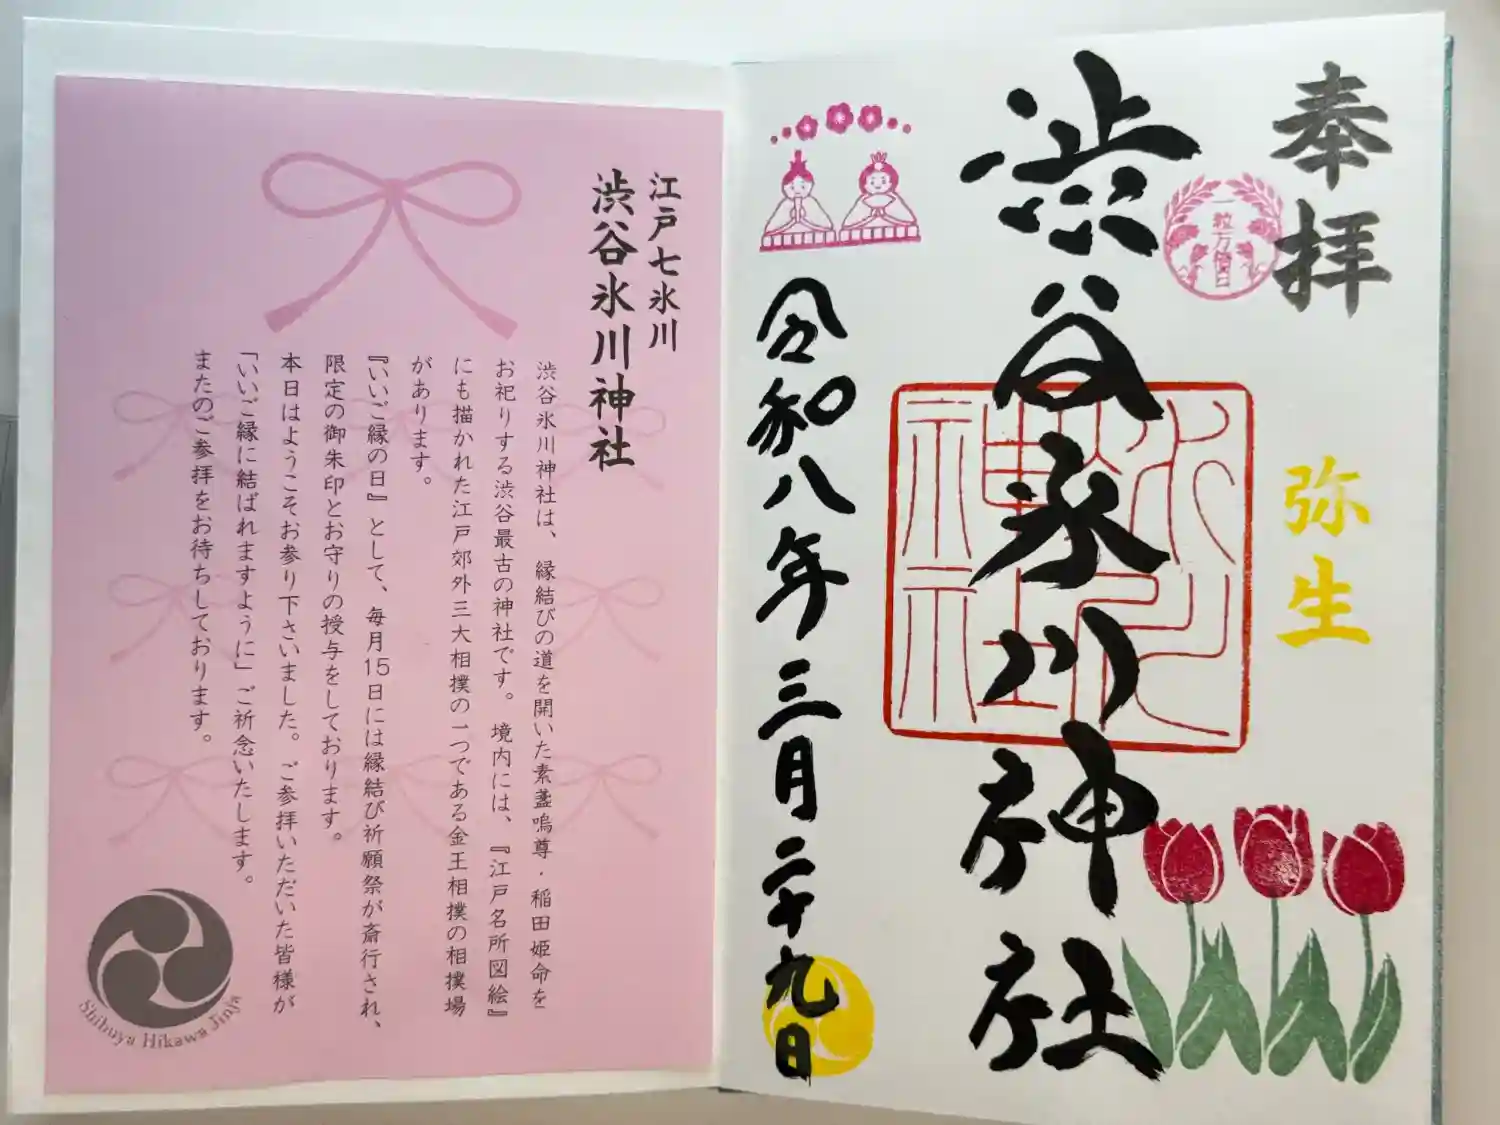 奉拝
一粒万倍日
弥生
渋谷氷川神社
氷川
神社
令和八年三月二十九日
江戸七氷川
渋谷氷川神社
渋谷氷川神社は、縁結びの道を開いた素盞嗚尊・稲田姫命を
お祀りする渋谷最古の神社です。境内には、『江戸名所図絵』
にも描かれた江戸郊外三大相撲の一つである金王相撲の相撲場
があります。
『いいご縁の日』として、毎月15日には縁結び祈願祭が斎行され、
限定の御朱印とお守りの授与をしております。
本日はようこそお参り下さいました。ご参拝いただいた皆様が
「いいご縁に結ばれますように」ご祈念いたします。
またのご参拝をお待ちしております。
Shibuya Hikawa Jinja